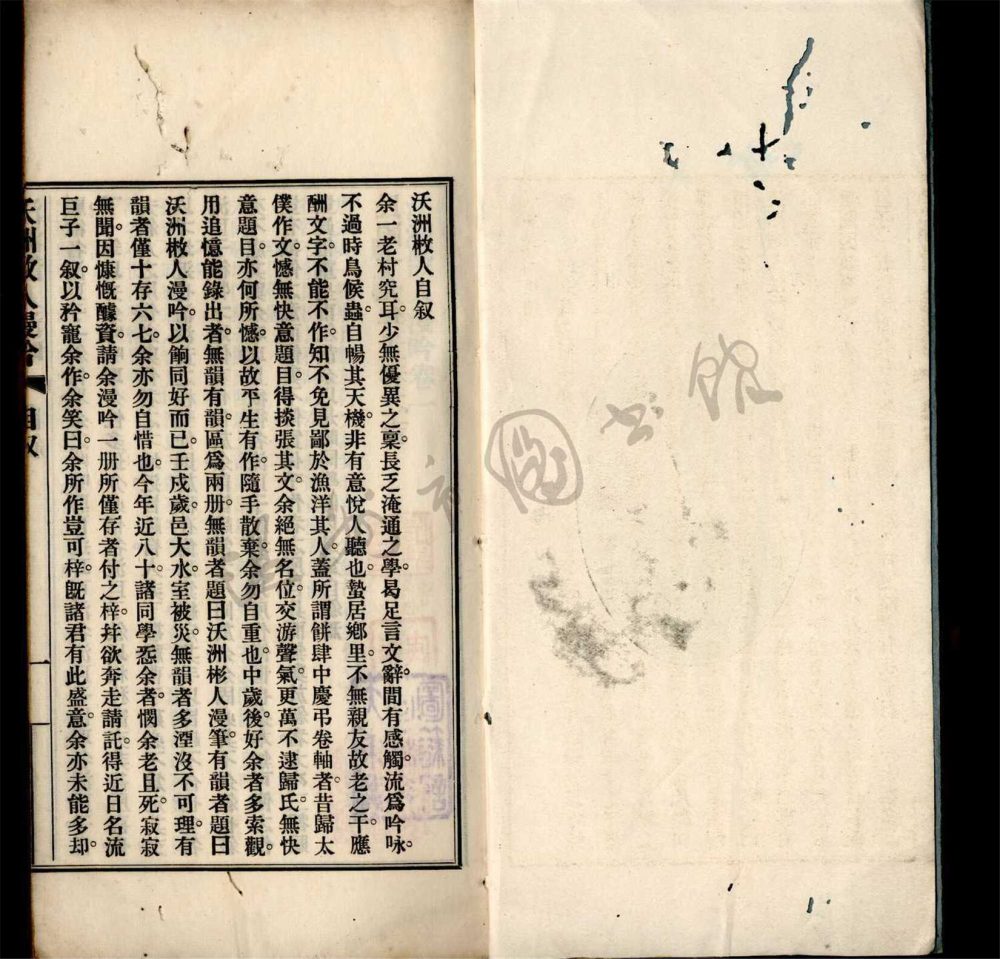 沃洲枚人自叙
余一老村究耳。少無優異之稟。長乏淹通之學。曷足言文辭。間有感觸。流爲吟咏。
不過時鳥候蟲。自暢其天機。非有意悅人聽也。蟄居鄉里。不無親友故老之干應
酬文字。不能不作。知不免見鄙於漁洋其人。蓋所謂餅肆中慶弔卷軸者。昔歸太
僕作文。憾無快意題目。得掞張其文。余絕無名位。交游聲氣。更萬不逮歸氏。無快
意題目。亦何所憾。以故平生有作。隨手散棄。余勿自重也。中歲後好余者多索觀。
用追憶能錄出者。無韻有韻。區爲兩册。無韻者題曰沃洲彬人漫筆。有韻者題曰
沃洲枚人漫吟。以餉同好而已。壬戌歲。邑大水。室被災。無韻者多湮沒不可理。有
韻者僅十存六七。余亦勿自惜也。今年近八十。諸同學惥余者。憫余老且死。寂寂
無聞。因慷慨醵資。請余漫吟一册所僅存者付之梓。幷欲奔走請託。得近日名流
巨子一叙。以矜寵余作。余笑曰。余所作豈可梓。旣諸君有此盛意。余亦未能多却。
自叙
一
圖書館